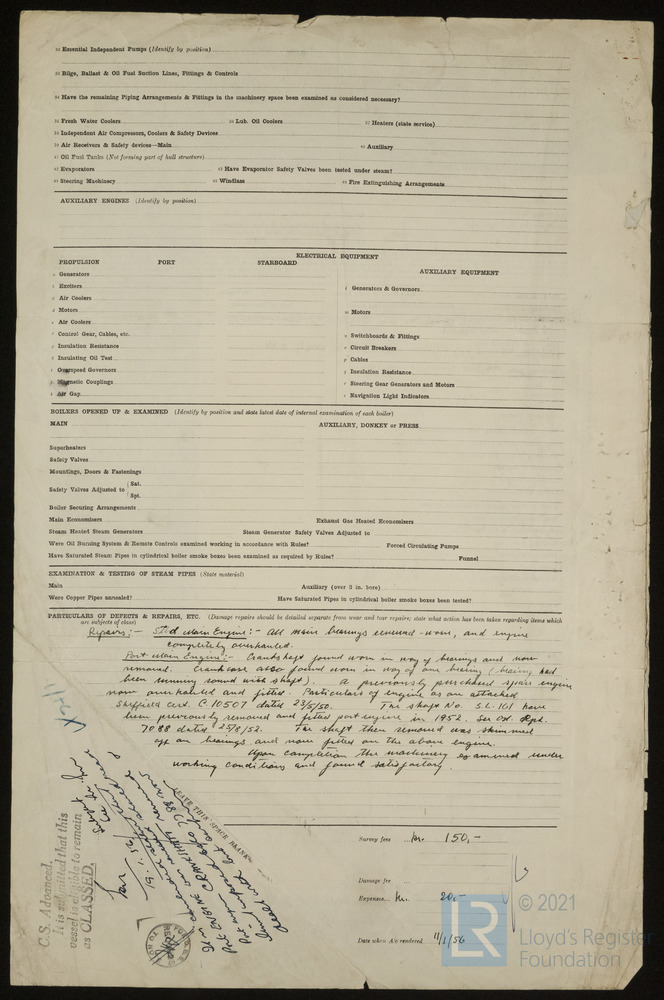 32 Essential Independent Pumps (Identify by position)
33 Bilge, Ballast & Oil Fuel Suction Lines, Fittings & Controls
34 Have the remaining Piping Arrangements & Fittings in the machinery space been examined as considered necessary?
35 Fresh Water Coolers 36 Lub. Oil Coolers 37 Heaters (state service)
38 Independent Air Compressors, Coolers & Safety Devices
39 Air Receivers & Safety devices—Main 40 Auxiliary
41 Oil Fuel Tanks (Not forming part of hull structure)
42 Evaporators 43 Have Evaporator Safety Valves been tested under steam?
Steering Machinery Windlass Fire Extinguishing Arrangements
AUXILIARY ENGINES (Identify by position)
ELECTRICAL EQUIPMENT
PROPULSION PORT STARBOARD AUXILIARY EQUIPMENT
Generators
Exciters
Air Coolers
Motors
Air Coolers
Control Gear, Cables, etc.
Insulation Resistance
Insulating Oil Test
Overspeed Governors
Magnetic Couplings
Air Gap
Generators & Governors
Motors
Switchboards & Fittings
Circuit Breakers
Cables
Insulation Resistance
Steering Gear Generators and Motors
Navigation Light Indicators
BOILERS OPENED UP & EXAMINED (Identify by position and state latest date of internal examination of each boiler)
MAIN AUXILIARY, DONKEY or PRESS.
Superheaters
Safety Valves
Mountings, Doors & Fastenings
Safety Valves Adjusted to Sat.
Spt.
Boiler Securing Arrangements
Main Economisers Exhaust Gas Heated Economisers
Steam Heated Steam Generators Steam Generator Safety Valves Adjusted to
Were Oil Burning System & Remote Controls examined working in accordance with Rules? Forced Circulating Pumps
Have Saturated Steam Pipes in cylindrical boiler smoke boxes been examined as required by Rules? Funnel
EXAMINATION & TESTING OF STEAM PIPES (State material)
Main Auxiliary (over 3 in. bore)
Were Copper Pipes annealed? Have Saturated Pipes in cylindrical boiler smoke boxes been tested?
PARTICULARS OF DEFECTS & REPAIRS, ETC. (Damage repairs should be detailed separate from wear and tear repairs; state what action has been taken regarding items which
are subjects of class)
Repairs:- Stbd Main Engine:- All main bearings renewed - worn, and engine
completely overhauled.
Port Main Engine:- Crankshaft found worn in way of bearings and now
removed. Crankcase also found worn in way of one bearing (bearing had
been running round with shaft). A previously purchased spare engine
now overhauled and fitted. Particulars of engine as on attached
Sheffield cert. C.10507 dated 23/5/50. The shaft No. S.L. 161 have
been previously removed and fitted port engine in 1952. See Rpt.
7088 dated 25/8/52. The shaft then removed was skimmed
up on bearings and now fitted on the above engine.
Upon completion the machinery examined under
working conditions and found satisfactory.
LEAVE THIS SPACE BLANK
C.S. Advanced.
It is submitted that this
vessel is eligible to remain
as CLASSED.
Survey fees Kr. 150,-
Damage fee
Expenses Kr. 20,-
Date when A/c rendered 11/1/56
LR
© 2021
Lloyd's Register
Foundation